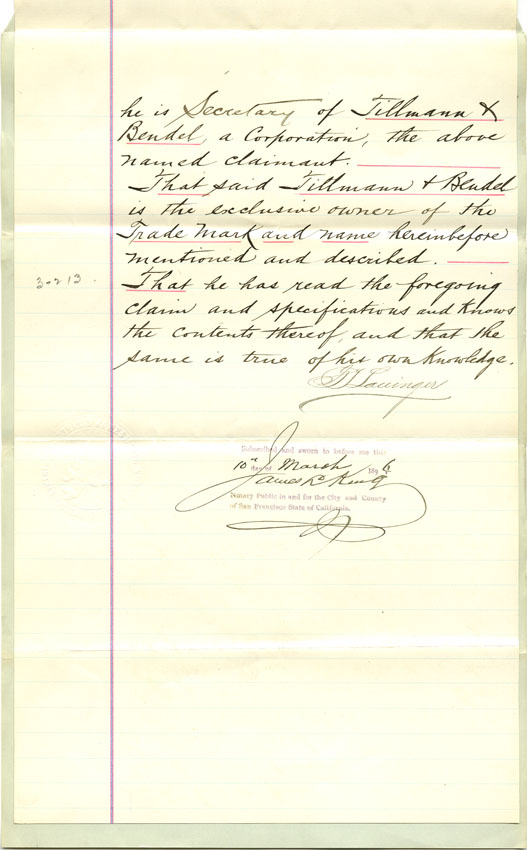 he is Secretary of Tillmann &
Bendel, a Corporation, the above
named claimant.
That said Tillmann & Bendel
is the exclusive owner of the
Trade Mark and name hereinbefore
mentioned and described.
3-213.
That he has read the foregoing
claim and specifications and knows
the contents thereof, and that the
same is true of his own knowledge.
Subscribed and sworn to before me this
10th day of March 1896
James L. King
Notary Public in and for the City and County
of San Francisco State of California.